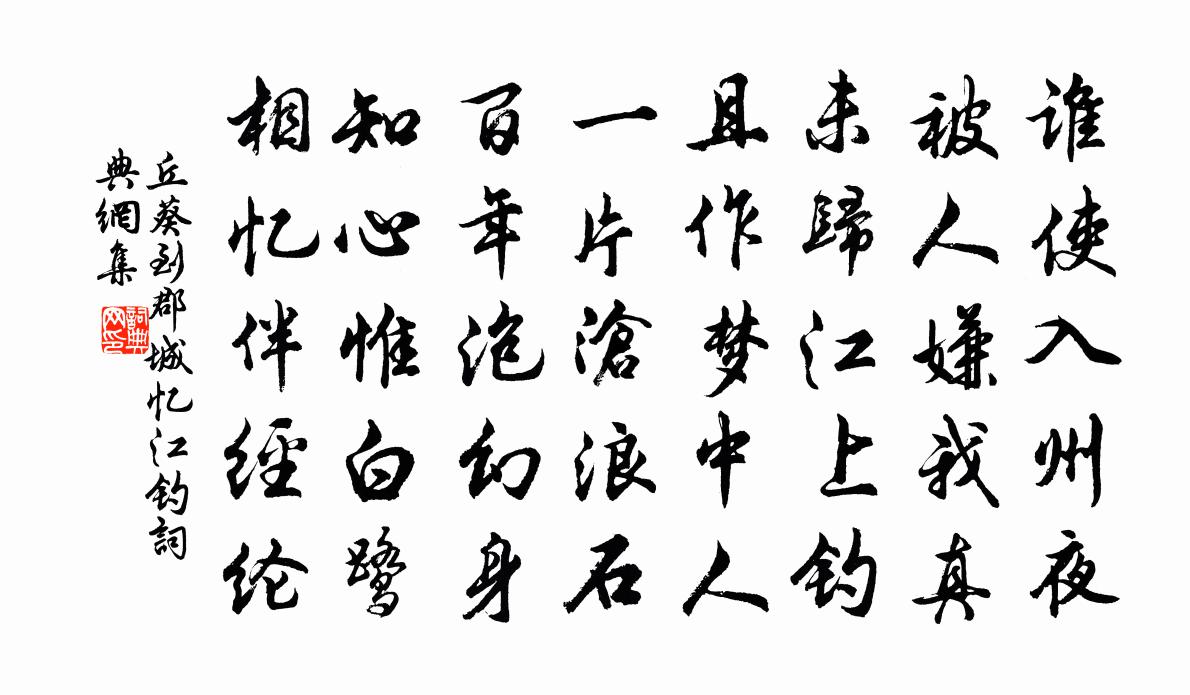 谁使入州夜
被人嫌我真
未歸江上钓
且作梦中人
一片滄浪石
百年泡幻身
知心惟白鹭
相忆伴經纶
丘葵到郡城忆江钓詞
典網集
詞典
网印